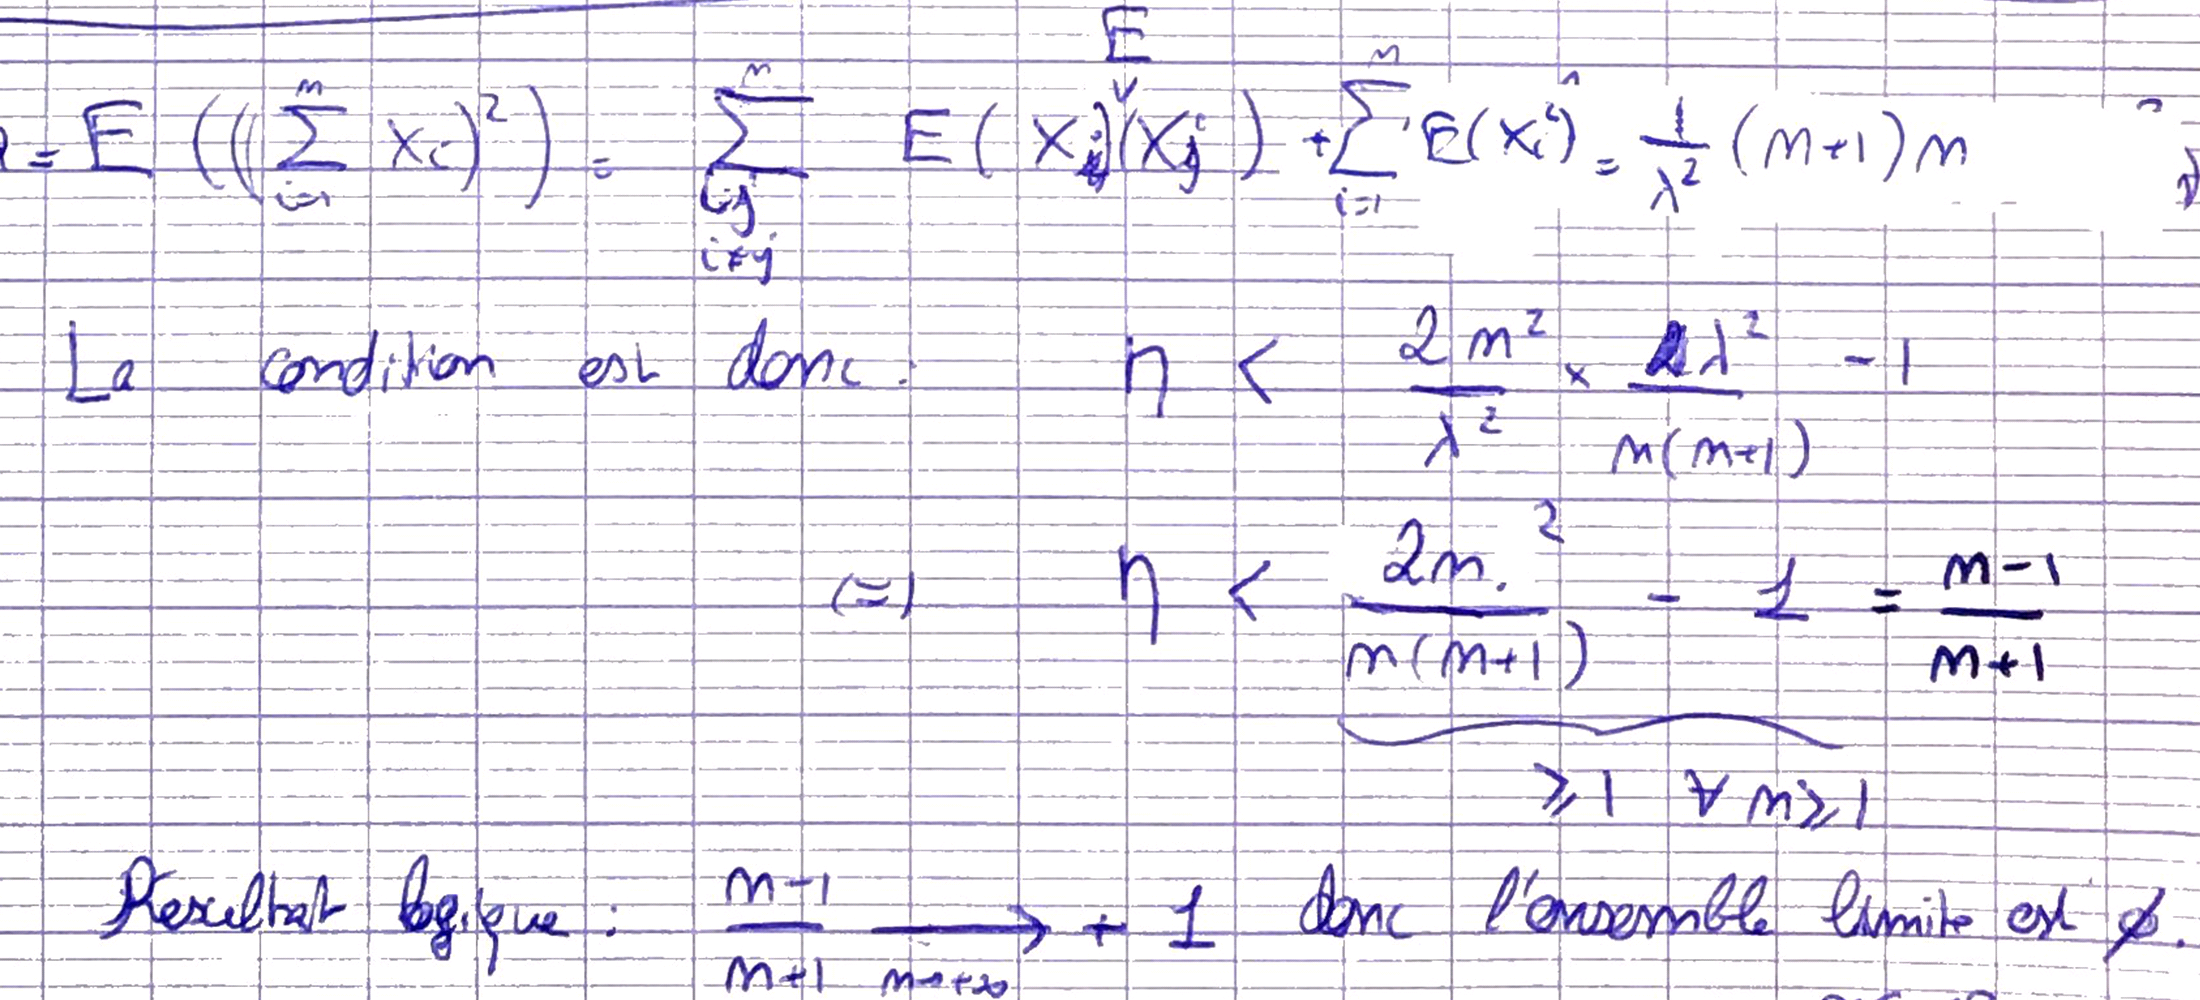 = E(((∑_{i=1}^{n} X_i)²) = ∑_{i,j i≠j}^{n} E(X_i)E(X_j) + ∑_{i=1}^{n} E(X_i²) = 1/λ² (n+1)n
La condition est donc : η < 2n²/λ² × λ²/n(n+1) - 1
(=) η < 2n²/n(n+1) - 1 = n-1/n+1
≥1 ∀ n≥1
Resultat logique : n-1/n+1 →_{n→+∞} + 1 donc l'ensemble limite est ∅.